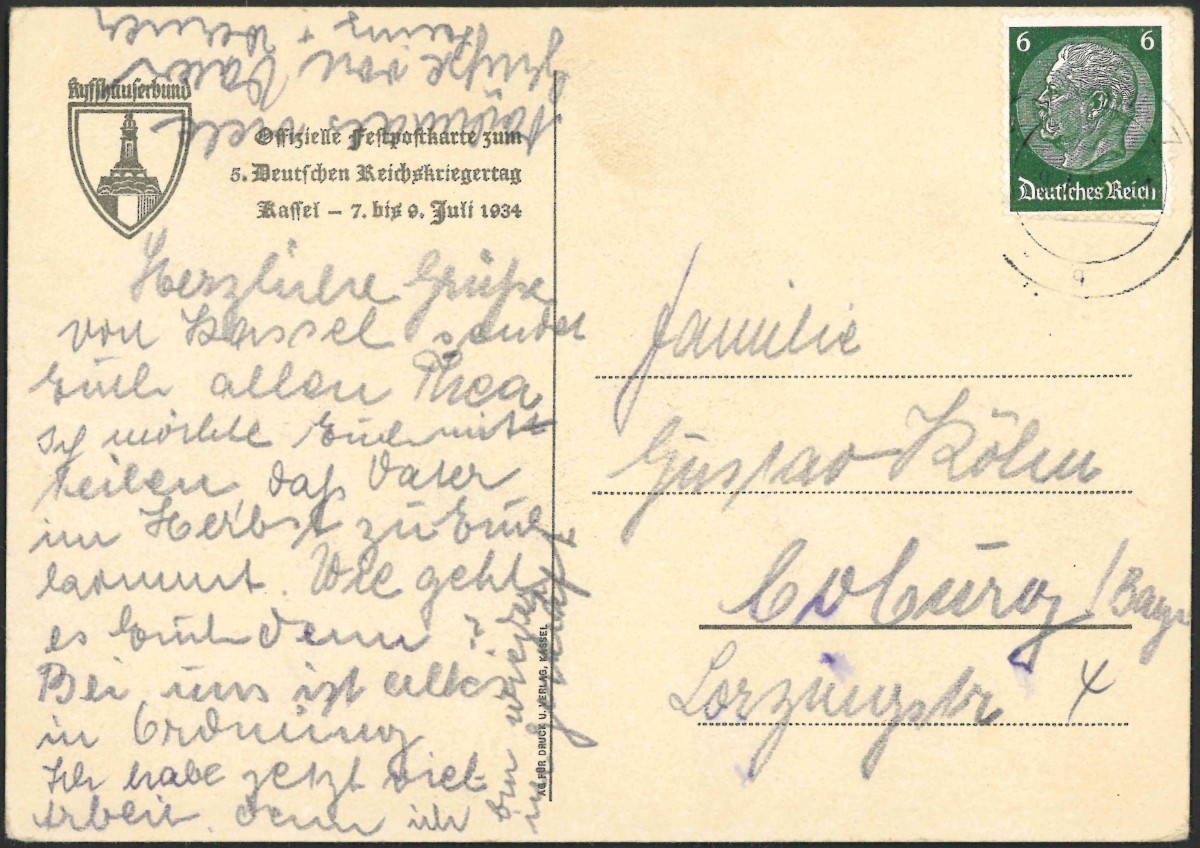 Kyffhäuserbund
Offizielle Festpostkarte zum
5. Deutschen Reichskriegertag
Kassel – 7. bis 9. Juli 1934
Herzliche Grüße
von Kassel sendet
Euch allen Thea
Ich möchte Euch mit-
teilen, daß Vater
im Herbst zu Euch
kommt. Wie geht
es Euch denn?
Bei uns ist alles
in Ordnung
Ich habe jetzt viel
Arbeit, denn ich
bin wieder
in
Grüße von Vater
Heinz + Werner
AG. FÜR DRUCK U. VERLAG, KASSEL
6 6
Deutsches Reich
Familie
Gustav Köhn
Coburg / Bay
Lorzingstr 4